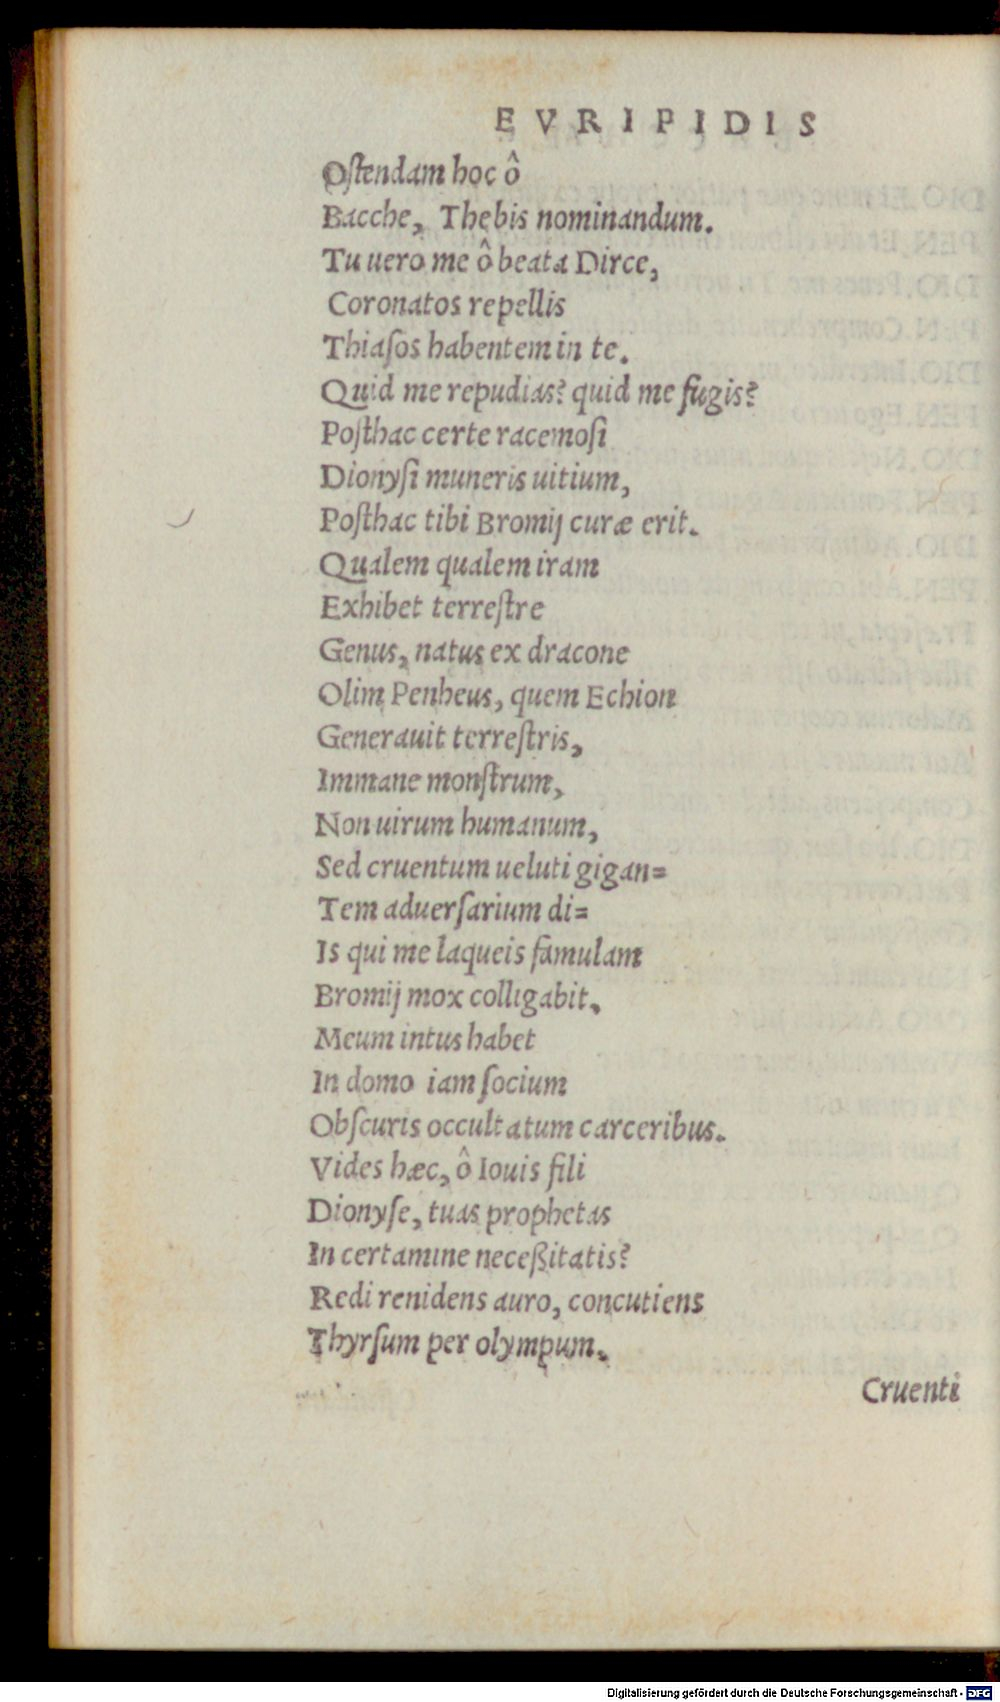 EVRIPIDIS
Oſtendam hoc ô
Bacche, Thebis nominandum.
Tu uero me ô beata Dirce,
Coronatos repellis
Thiaſos habentem in te.
Quid me repudias? quid me fugis?
Poſthac certe racemoſi
Dionyſi muneris uitium,
Poſthac tibi Bromij curæ erit.
Qualem qualem iram
Exhibet terreſtre
Genus, natus ex dracone
Olim Penheus, quem Echion
Generauit terreſtris,
Immane monſtrum,
Non uirum humanum,
Sed cruentum ueluti gigan=
Tem aduerſarium di=
Is qui me laqueis famulam
Bromij mox colligabit.
Meum intus habet
In domo iam ſocium
Obſcuris occultatum carceribus.
Vides hæc, ô Iouis fili
Dionyſe, tuas prophetas
In certamine neceßitatis?
Redi renidens auro, concutiens
Thyrſum per olympum.
Cruenti
Digitalisierung gefördert durch die Deutsche Forschungsgemeinschaft - DFG